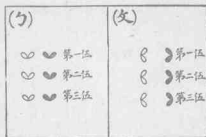 (ㄅ)
第一伍
第二伍
第三伍
(ㄆ)
第一伍
第二伍
第三伍